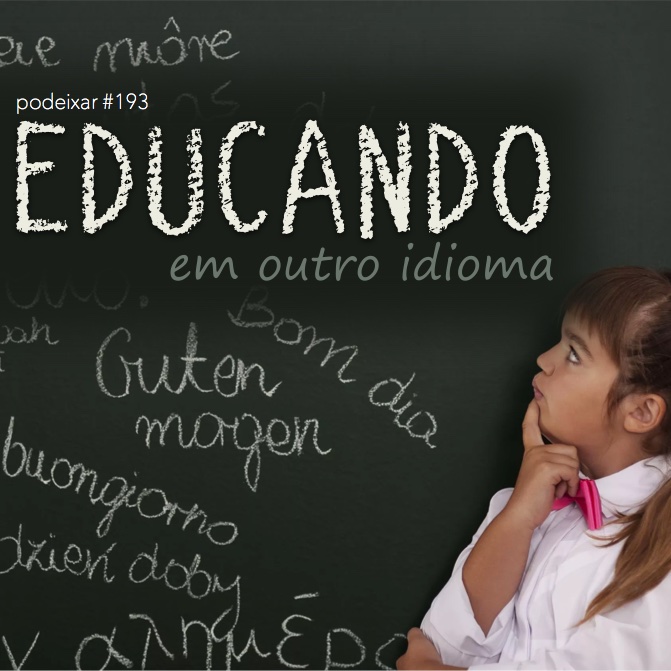 muôre
podeixar #193
EDUCANDO
em outro idioma
Bom dia
Guten
morgen
buongiorno
dzień doby